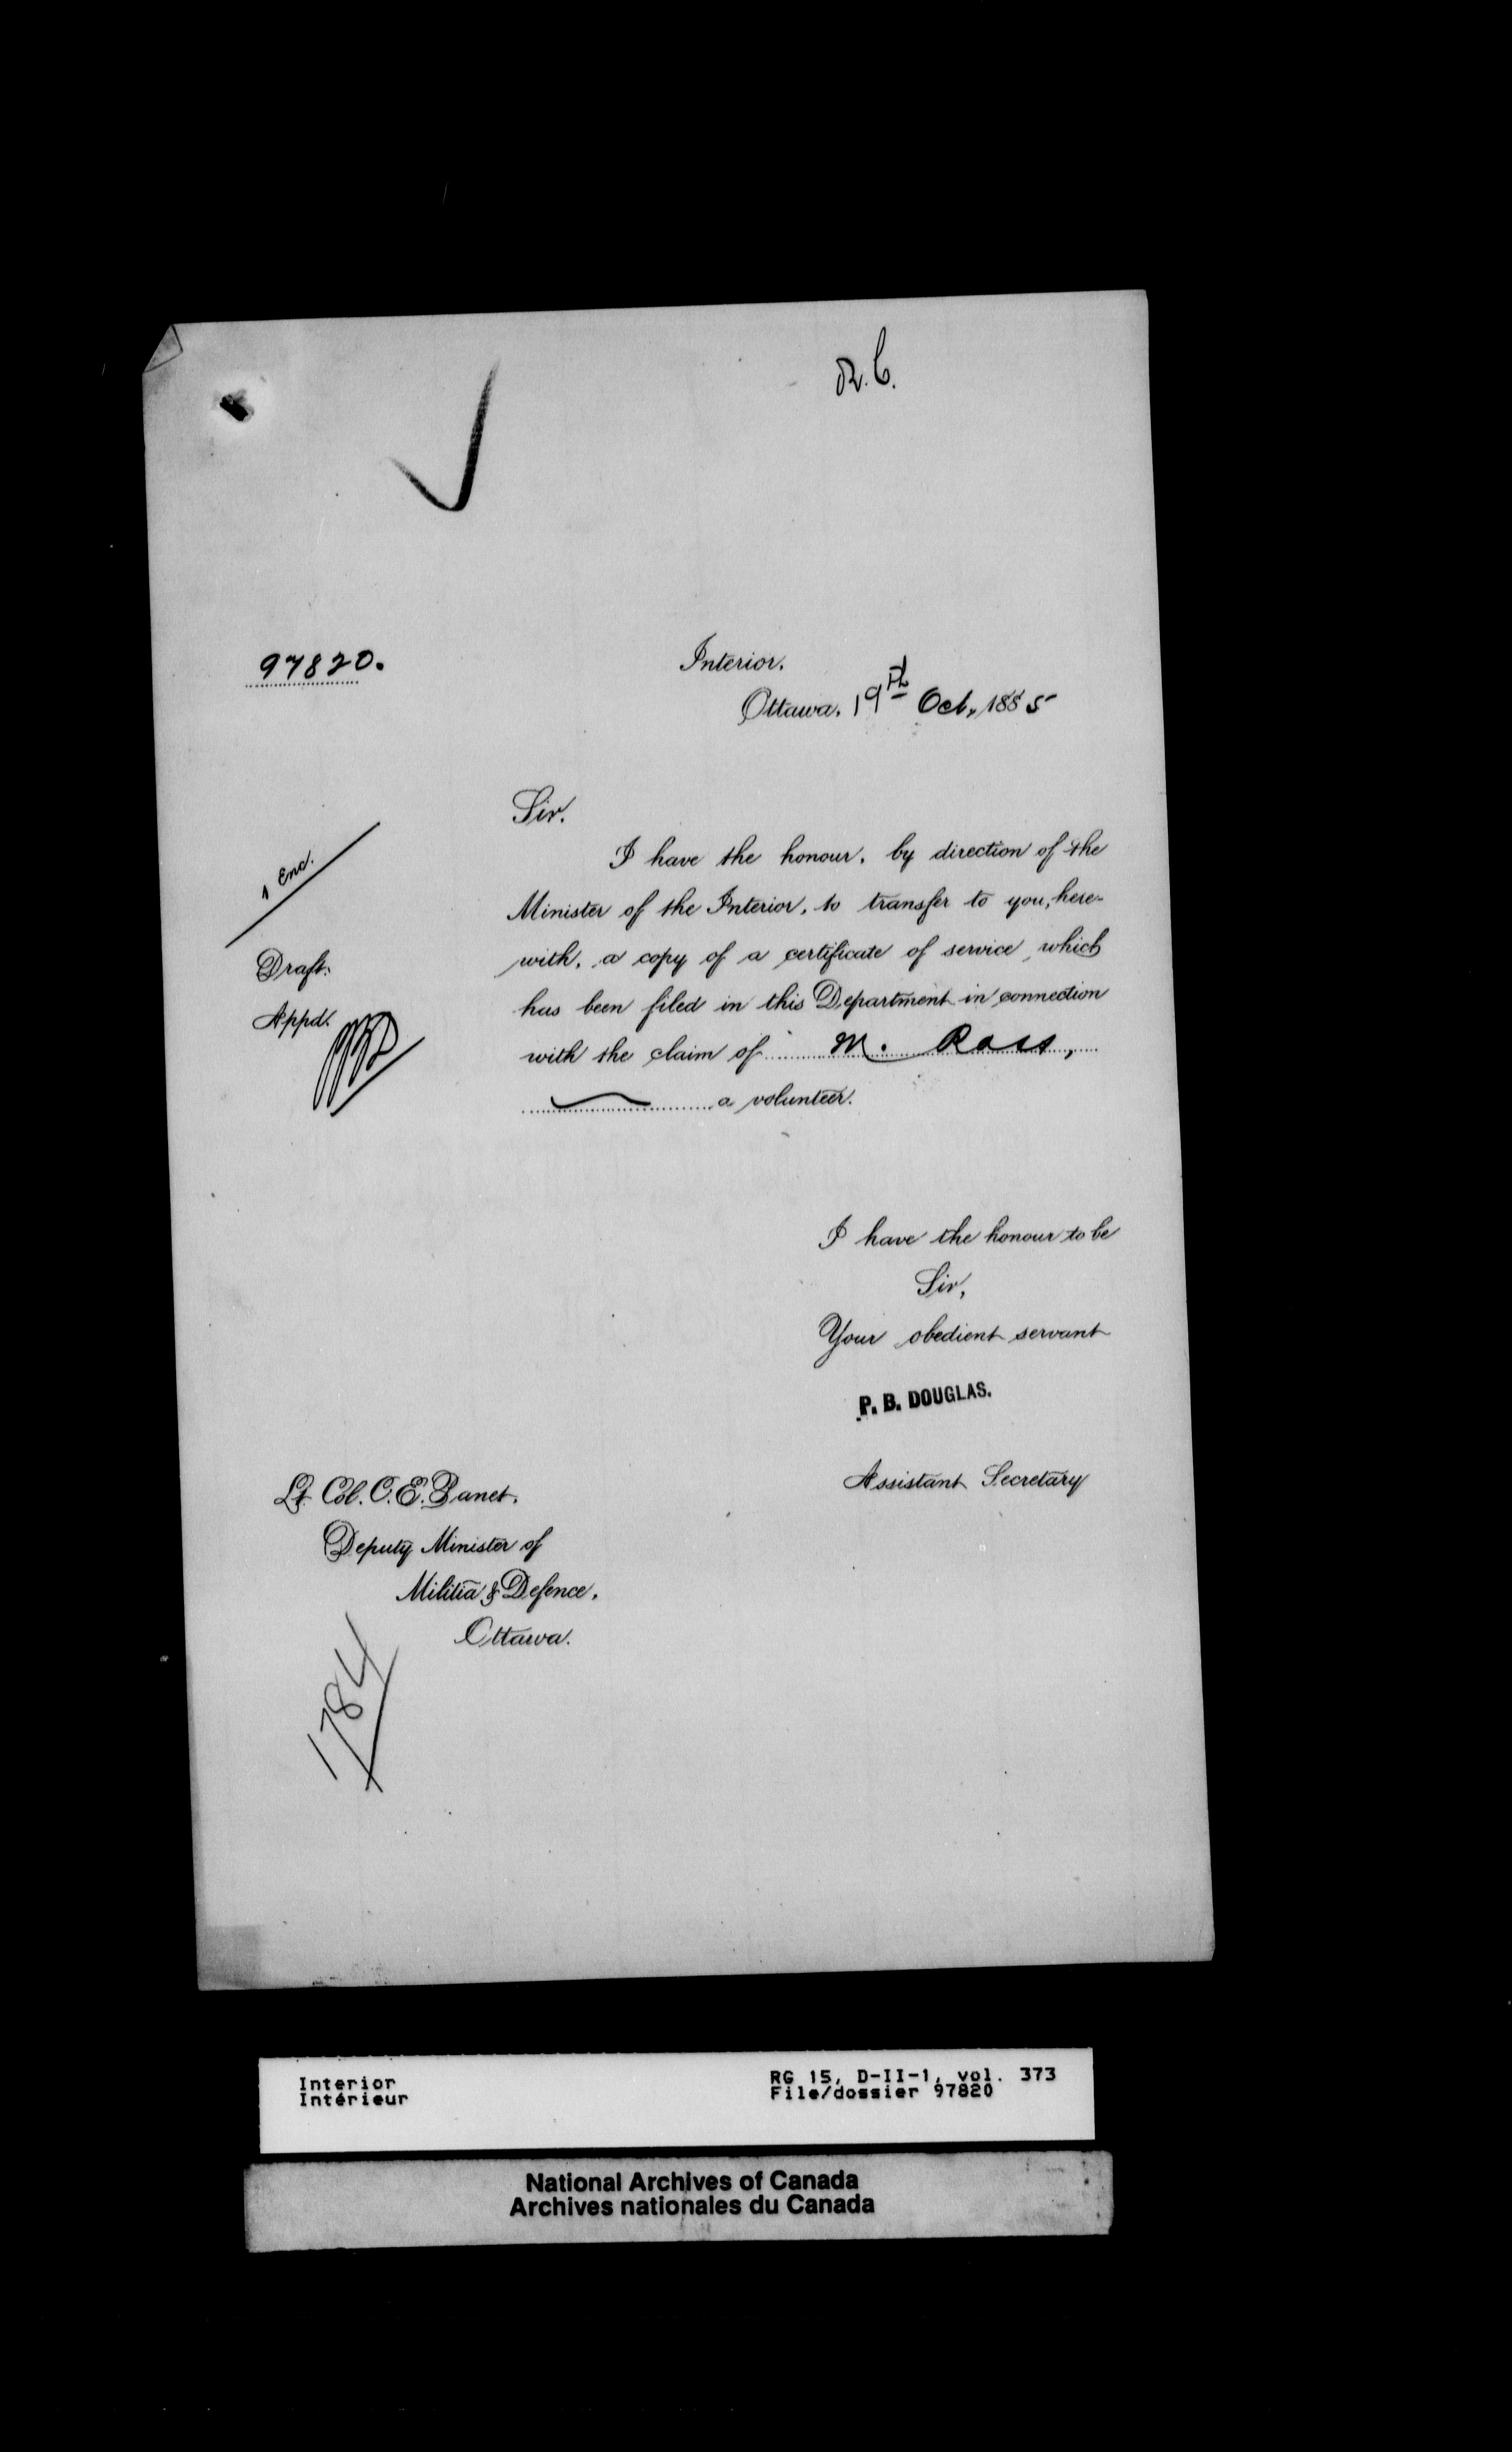 R.C.
97820.
Interior.
Ottawa, 19th Oct, 1885
Sir.
1 Enc.
I have the honour, by direction of the
Minister of the Interior, to transfer to you, here-
with, a copy of a certificate of service, which
has been filed in this Department in connection
with the claim of M. Ross,
a volunteer.
Draft.
Appd.
I have the honour to be
Sir,
Your obedient servant
P. B. DOUGLAS.
Assistant Secretary
Lt. Col. C. E. Panet.
Deputy Minister of
Militia & Defence,
Ottawa.
1784
Interior
Intérieur
RG 15, D-II-1, vol. 373
File/dossier 97820
National Archives of Canada
Archives nationales du Canada